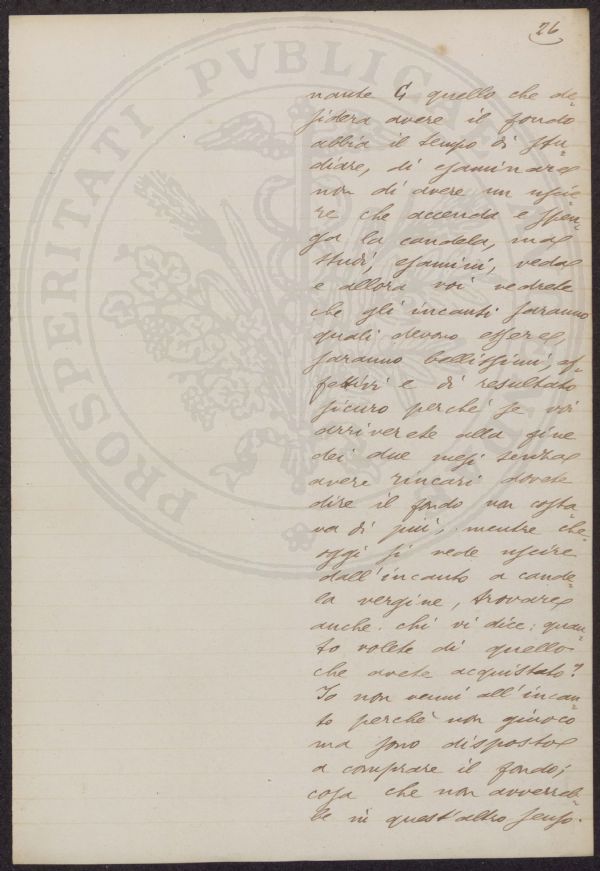 26
PROSPERITATI PVBLICAE
nante è quello che de-
sidera avere il fondo
abbia il tempo di stu-
diare, di esaminare
non di avere un uscie-
re che accenda e spen-
ga la candela, ma
studi, esamini, veda
e allora voi vedrete
che gli incanti saranno
quali devono essere,
saranno bellissimi, ef-
fettivi e di resultato
sicuro perché se voi
arriverete alla fine
dei due mesi senza
avere rincari dovete
dire il fondo non costa-
va di più; mentre che
oggi si vede uscire
dall'incanto a cande-
la vergine, trovare
anche chi vi dice: quan-
to volete di quello
che avete acquistato?
Io non venni all'incan-
to perchè non giuoco
ma sono disposto
a comprare il fondo;
cosa che non avverreb-
be in quest'altro senso.